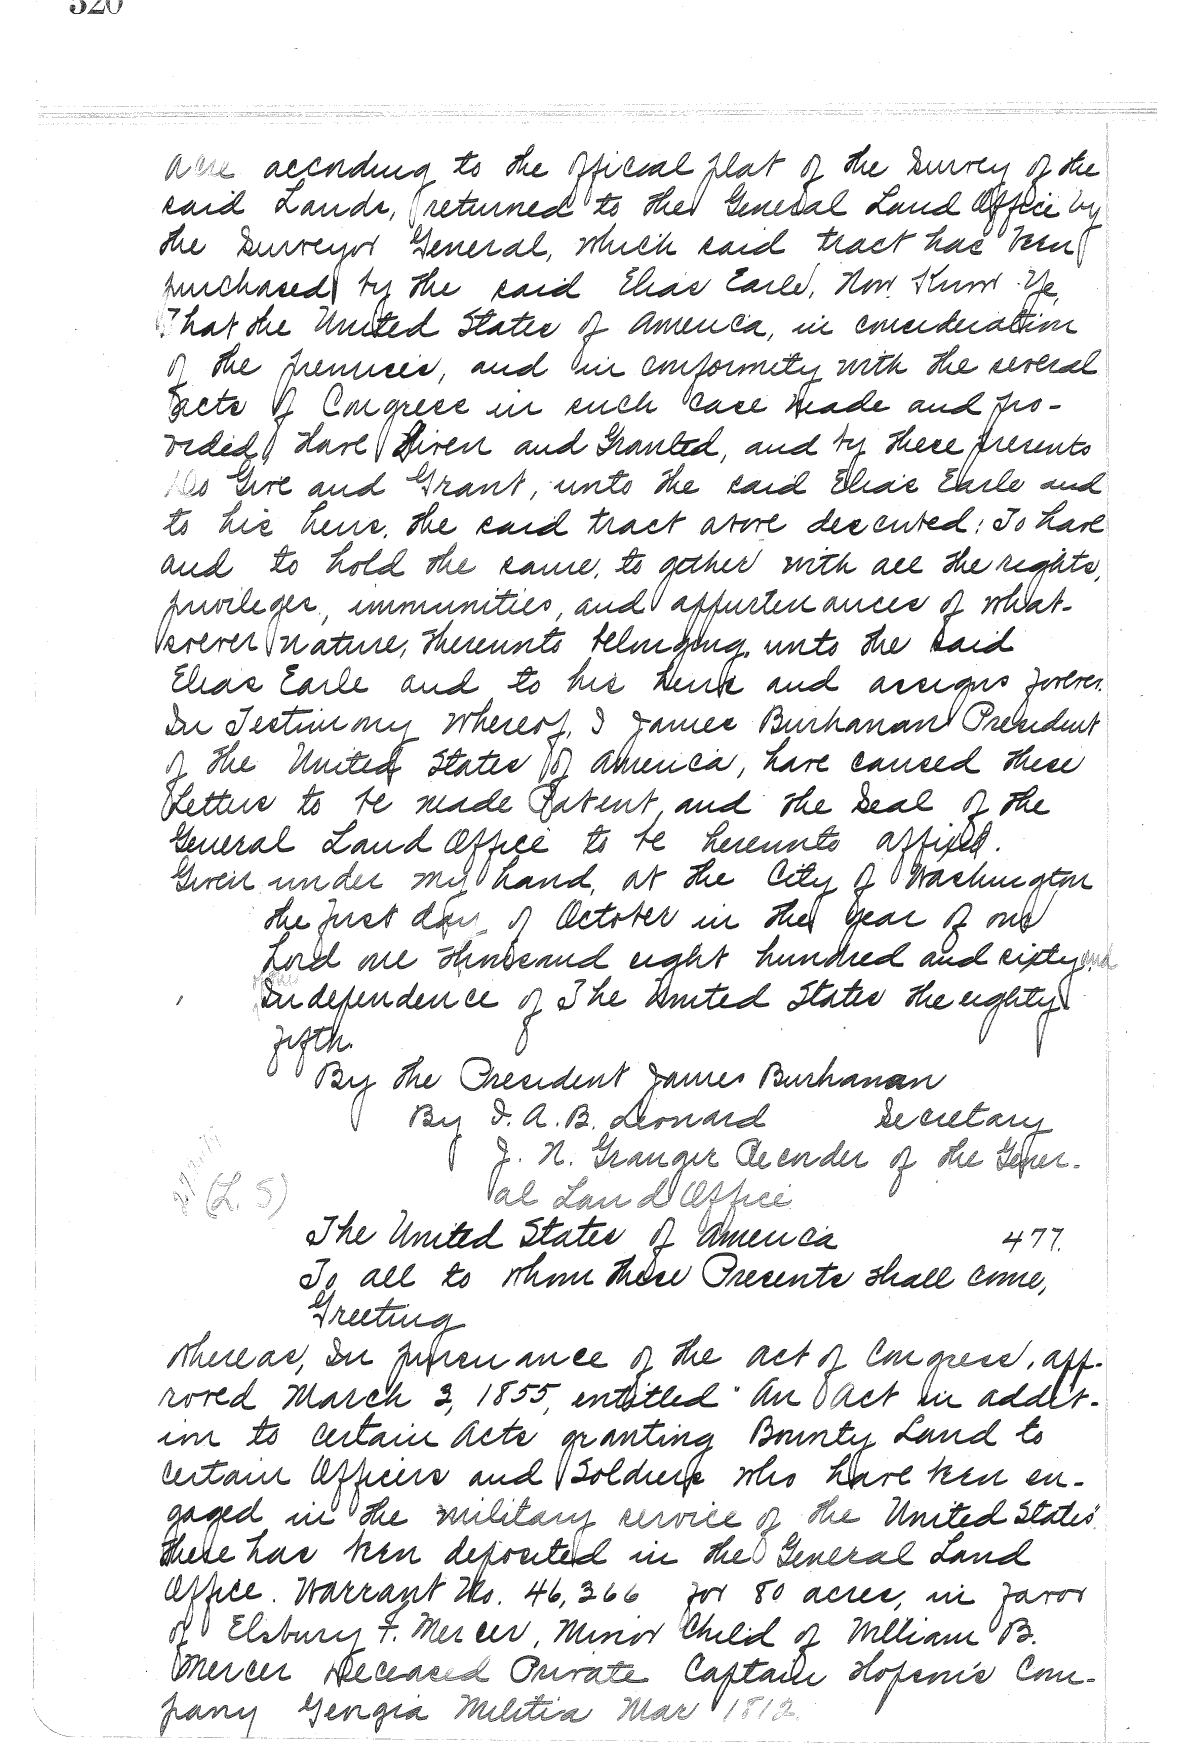 320
acre according to the official plat of the Survey of the
said Lands, returned to the General Land Office by
the Surveyor General, which said tract has been
purchased by the said Elias Earle, Now Know Ye,
That the United States of America, in consideration
of the premises, and in conformity with the several
acts of Congress in such case made and pro-
vided, have Given and Granted, and by these presents
Do Give and Grant, unto the said Elias Earle and
to his heirs, the said tract above described: To have
and to hold the same, to gether with all the rights,
privileges, immunities, and appurtenances of what-
soever nature, thereunto belonging, unto the said
Elias Earle and to his heirs and assigns forever.
In Testimony Whereof, I James Buchanan President
of the United States of America, have caused these
Letters to be made Patent, and the Seal of the
General Land Office to be hereunto affixed.
Given under my hand, at the City of Washington
the first day of October in the year of our
Lord one thousand eight hundred and sixty and
Independence of The United States the eighty
fifth.
By the President James Buchanan
By J. A. B. Leonard Secretary
J. N. Granger Recorder of the Gener-
(L. S) al Land Office
The United States of America 477.
To all to whom these Presents shall come,
Greeting
Whereas, In pursuance of the act of Congress, app-
roved March 3, 1855, entitled "An Act in addit-
ion to certain Acts granting Bounty Land to
certain Officers and Soldiers who have been en-
gaged in the military service of the United States"
there has been deposited in the General Land
Office. Warrant No. 46,366 for 80 acres, in favor
of Elsbury F. Mercer, Minor Child of William B.
Mercer Deceased Private Captain Hopson's Com-
pany Georgia Militia War 1812.